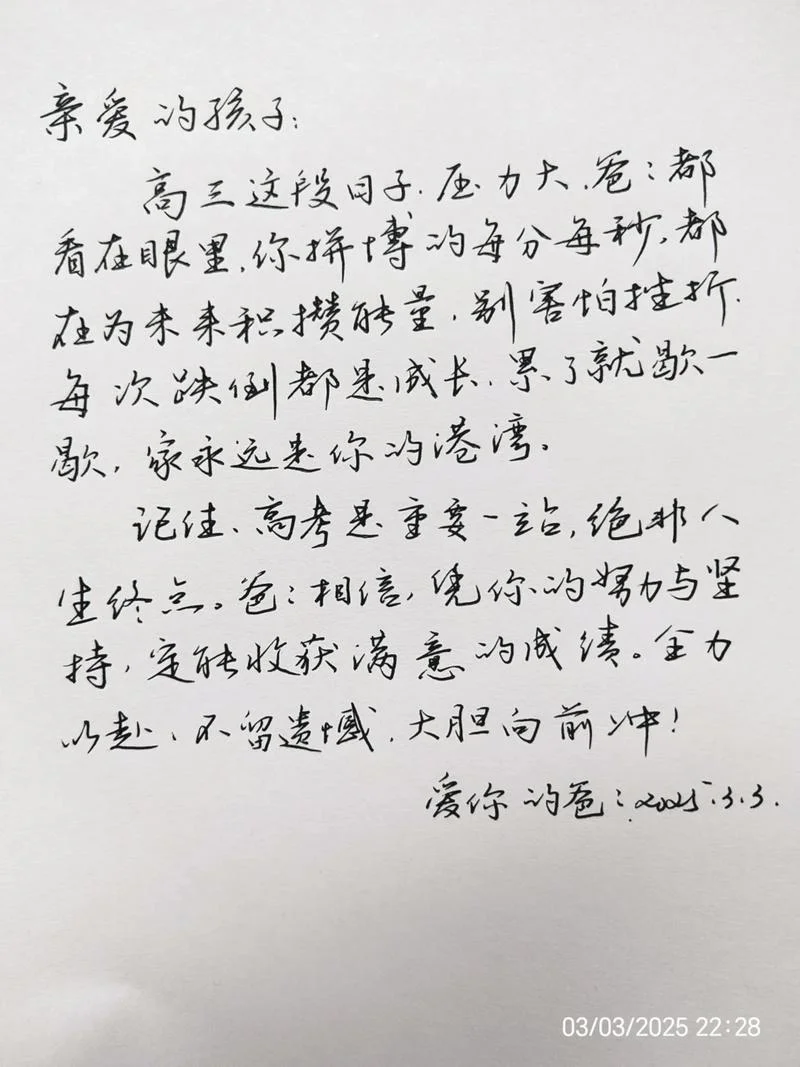 亲爱的孩子:
高三这段日子,压力大,爸:都
看在眼里,你拼博的每分每秒,都
在为未来积攒能量,别害怕挫折,
每次跌倒都是成长,累了就歇一
歇,家永远是你的港湾。
记住,高考是重要一站,绝非人
生终点。爸:相信,凭你的努力与坚
持,定能收获满意的成绩。全力
以赴,不留遗憾,大胆向前冲!
爱你的爸:2025.3.3.
03/03/2025 22:28